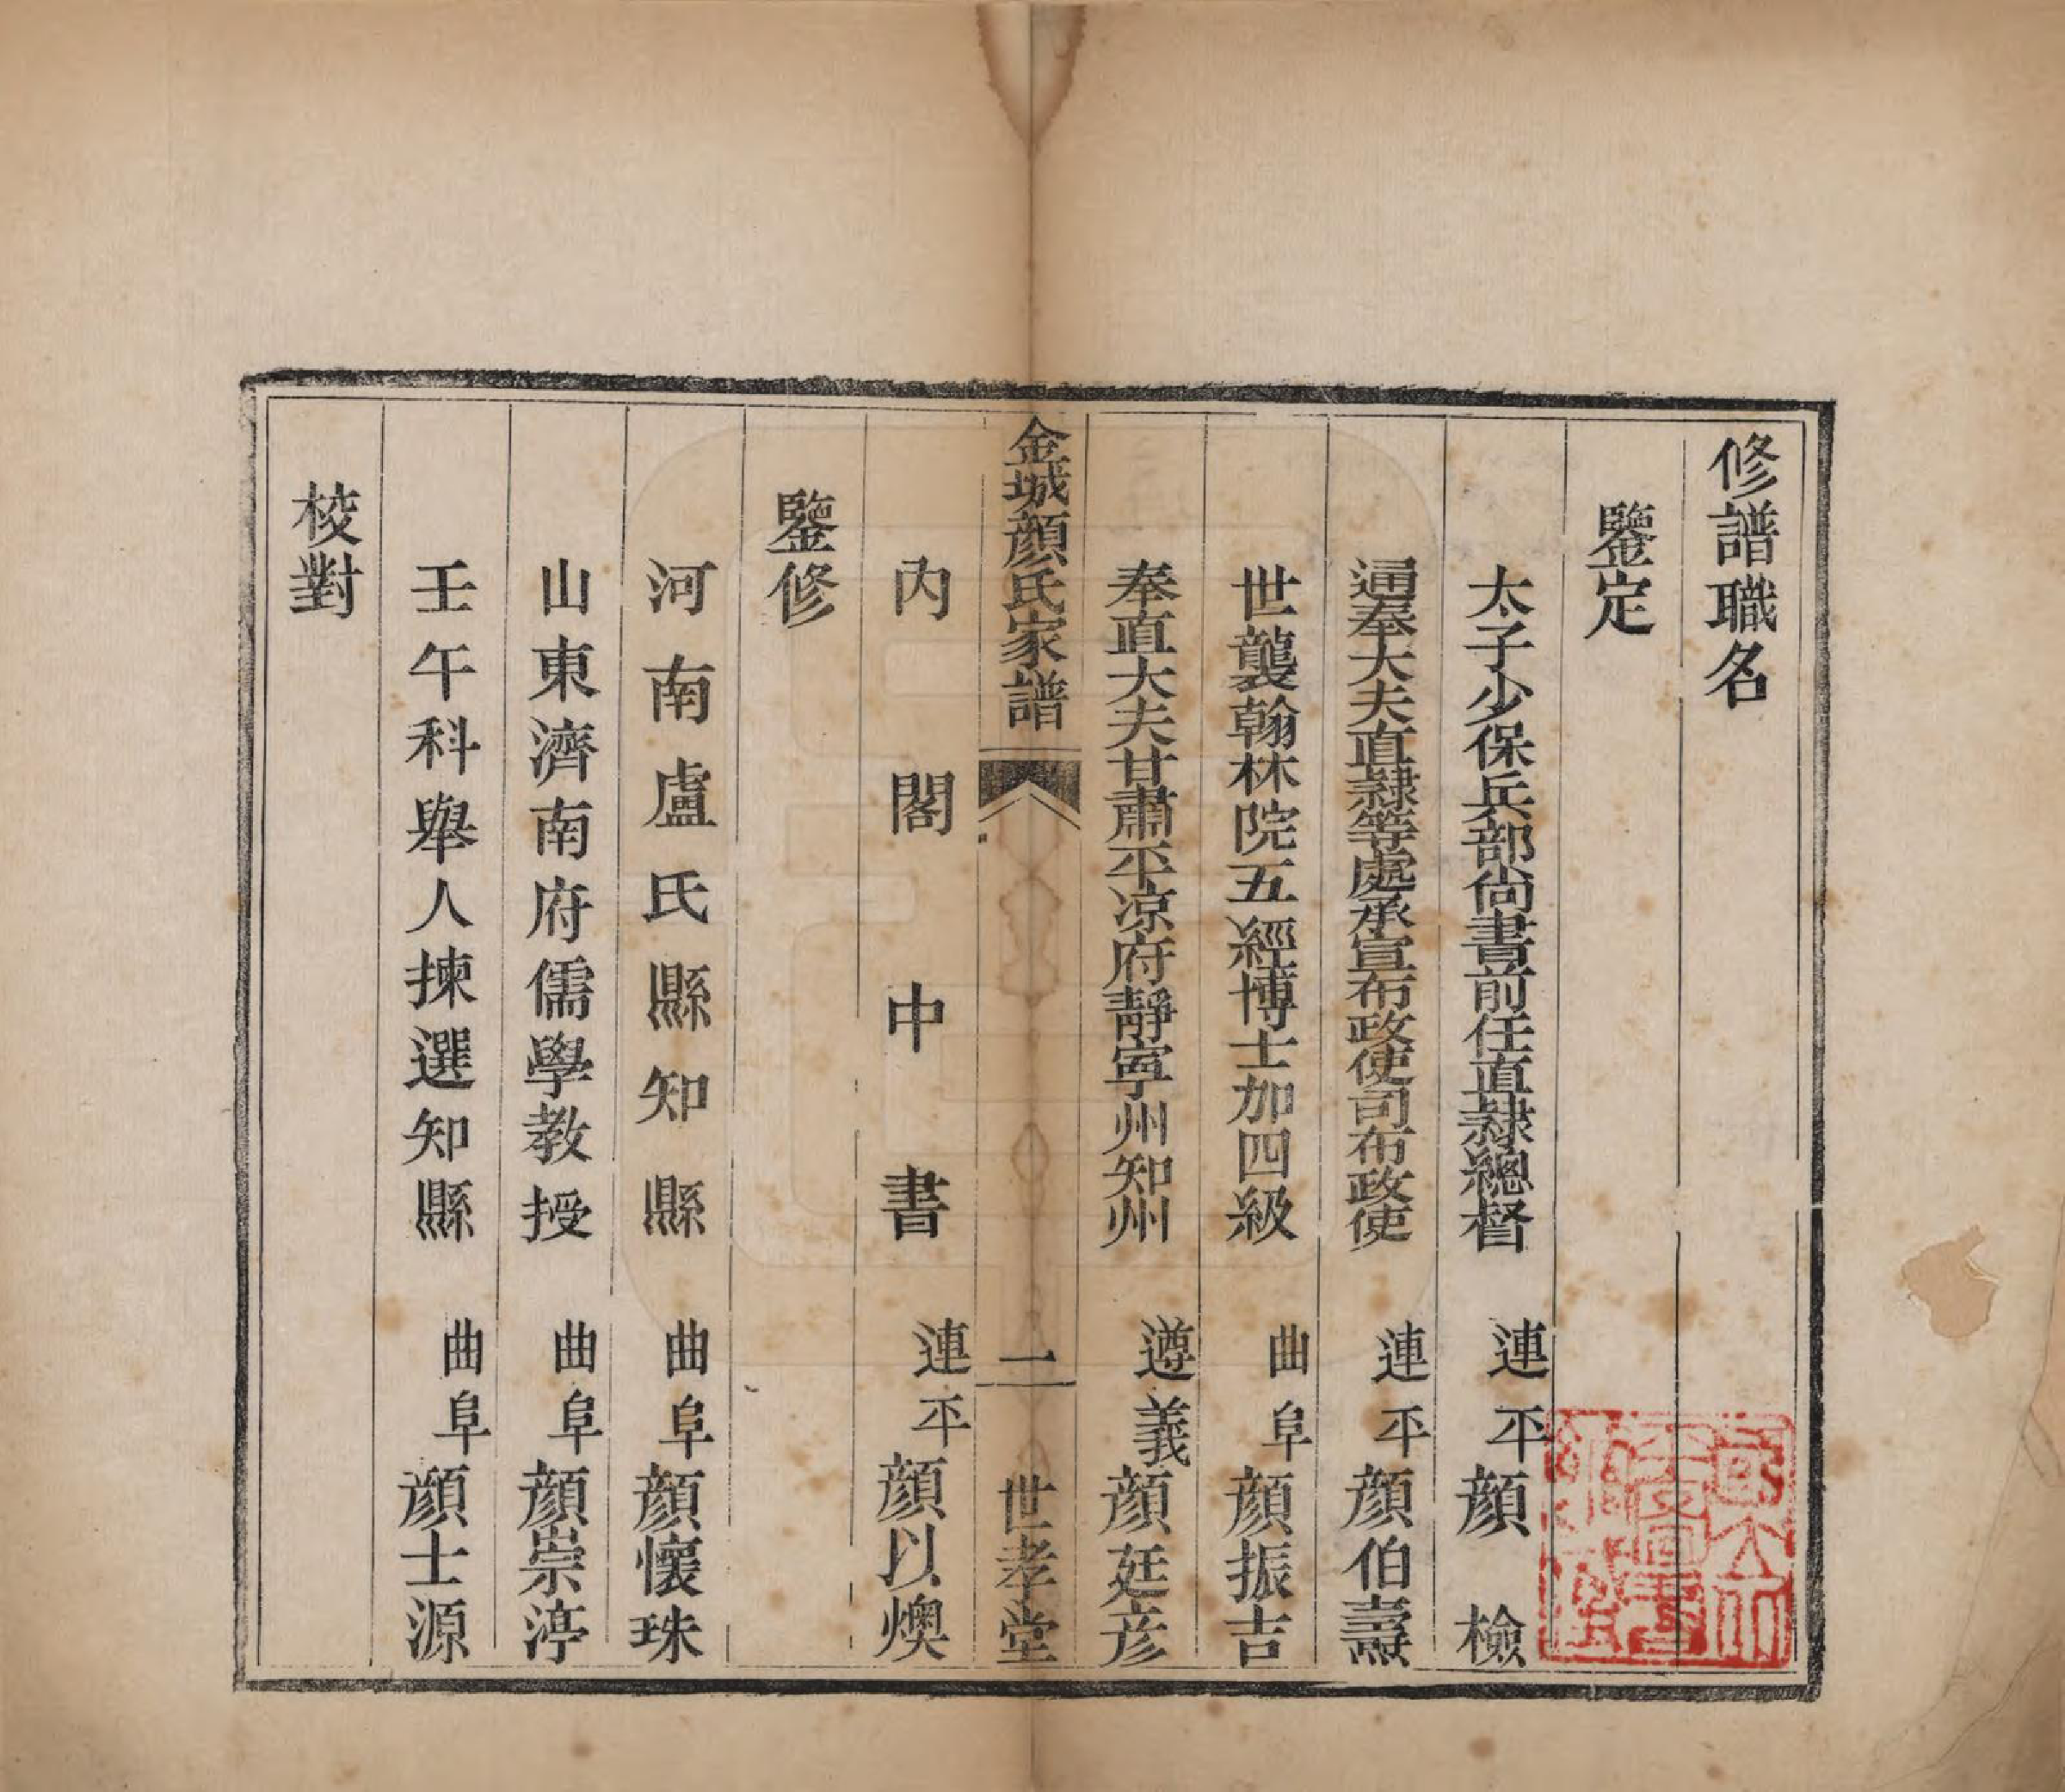 修譜職名
鑒定
太子少保兵部尚書前任直隸總督 連平顏 檢
通奉大夫直隸等處承宣布政使司布政使 連平顏伯燾
世襲翰林院五經博士加四級 曲阜顏振吉
奉直大夫甘肅平凉府靜寧州知州 遵義顏廷彦
金城顏氏家譜 二 世孝堂
內閣中書 連平顏以燠
鑒修
河南盧氏縣知縣 曲阜顏懷珠
山東濟南府儒學教授 曲阜顏崇渟
壬午科舉人揀選知縣 曲阜顏士源
校對